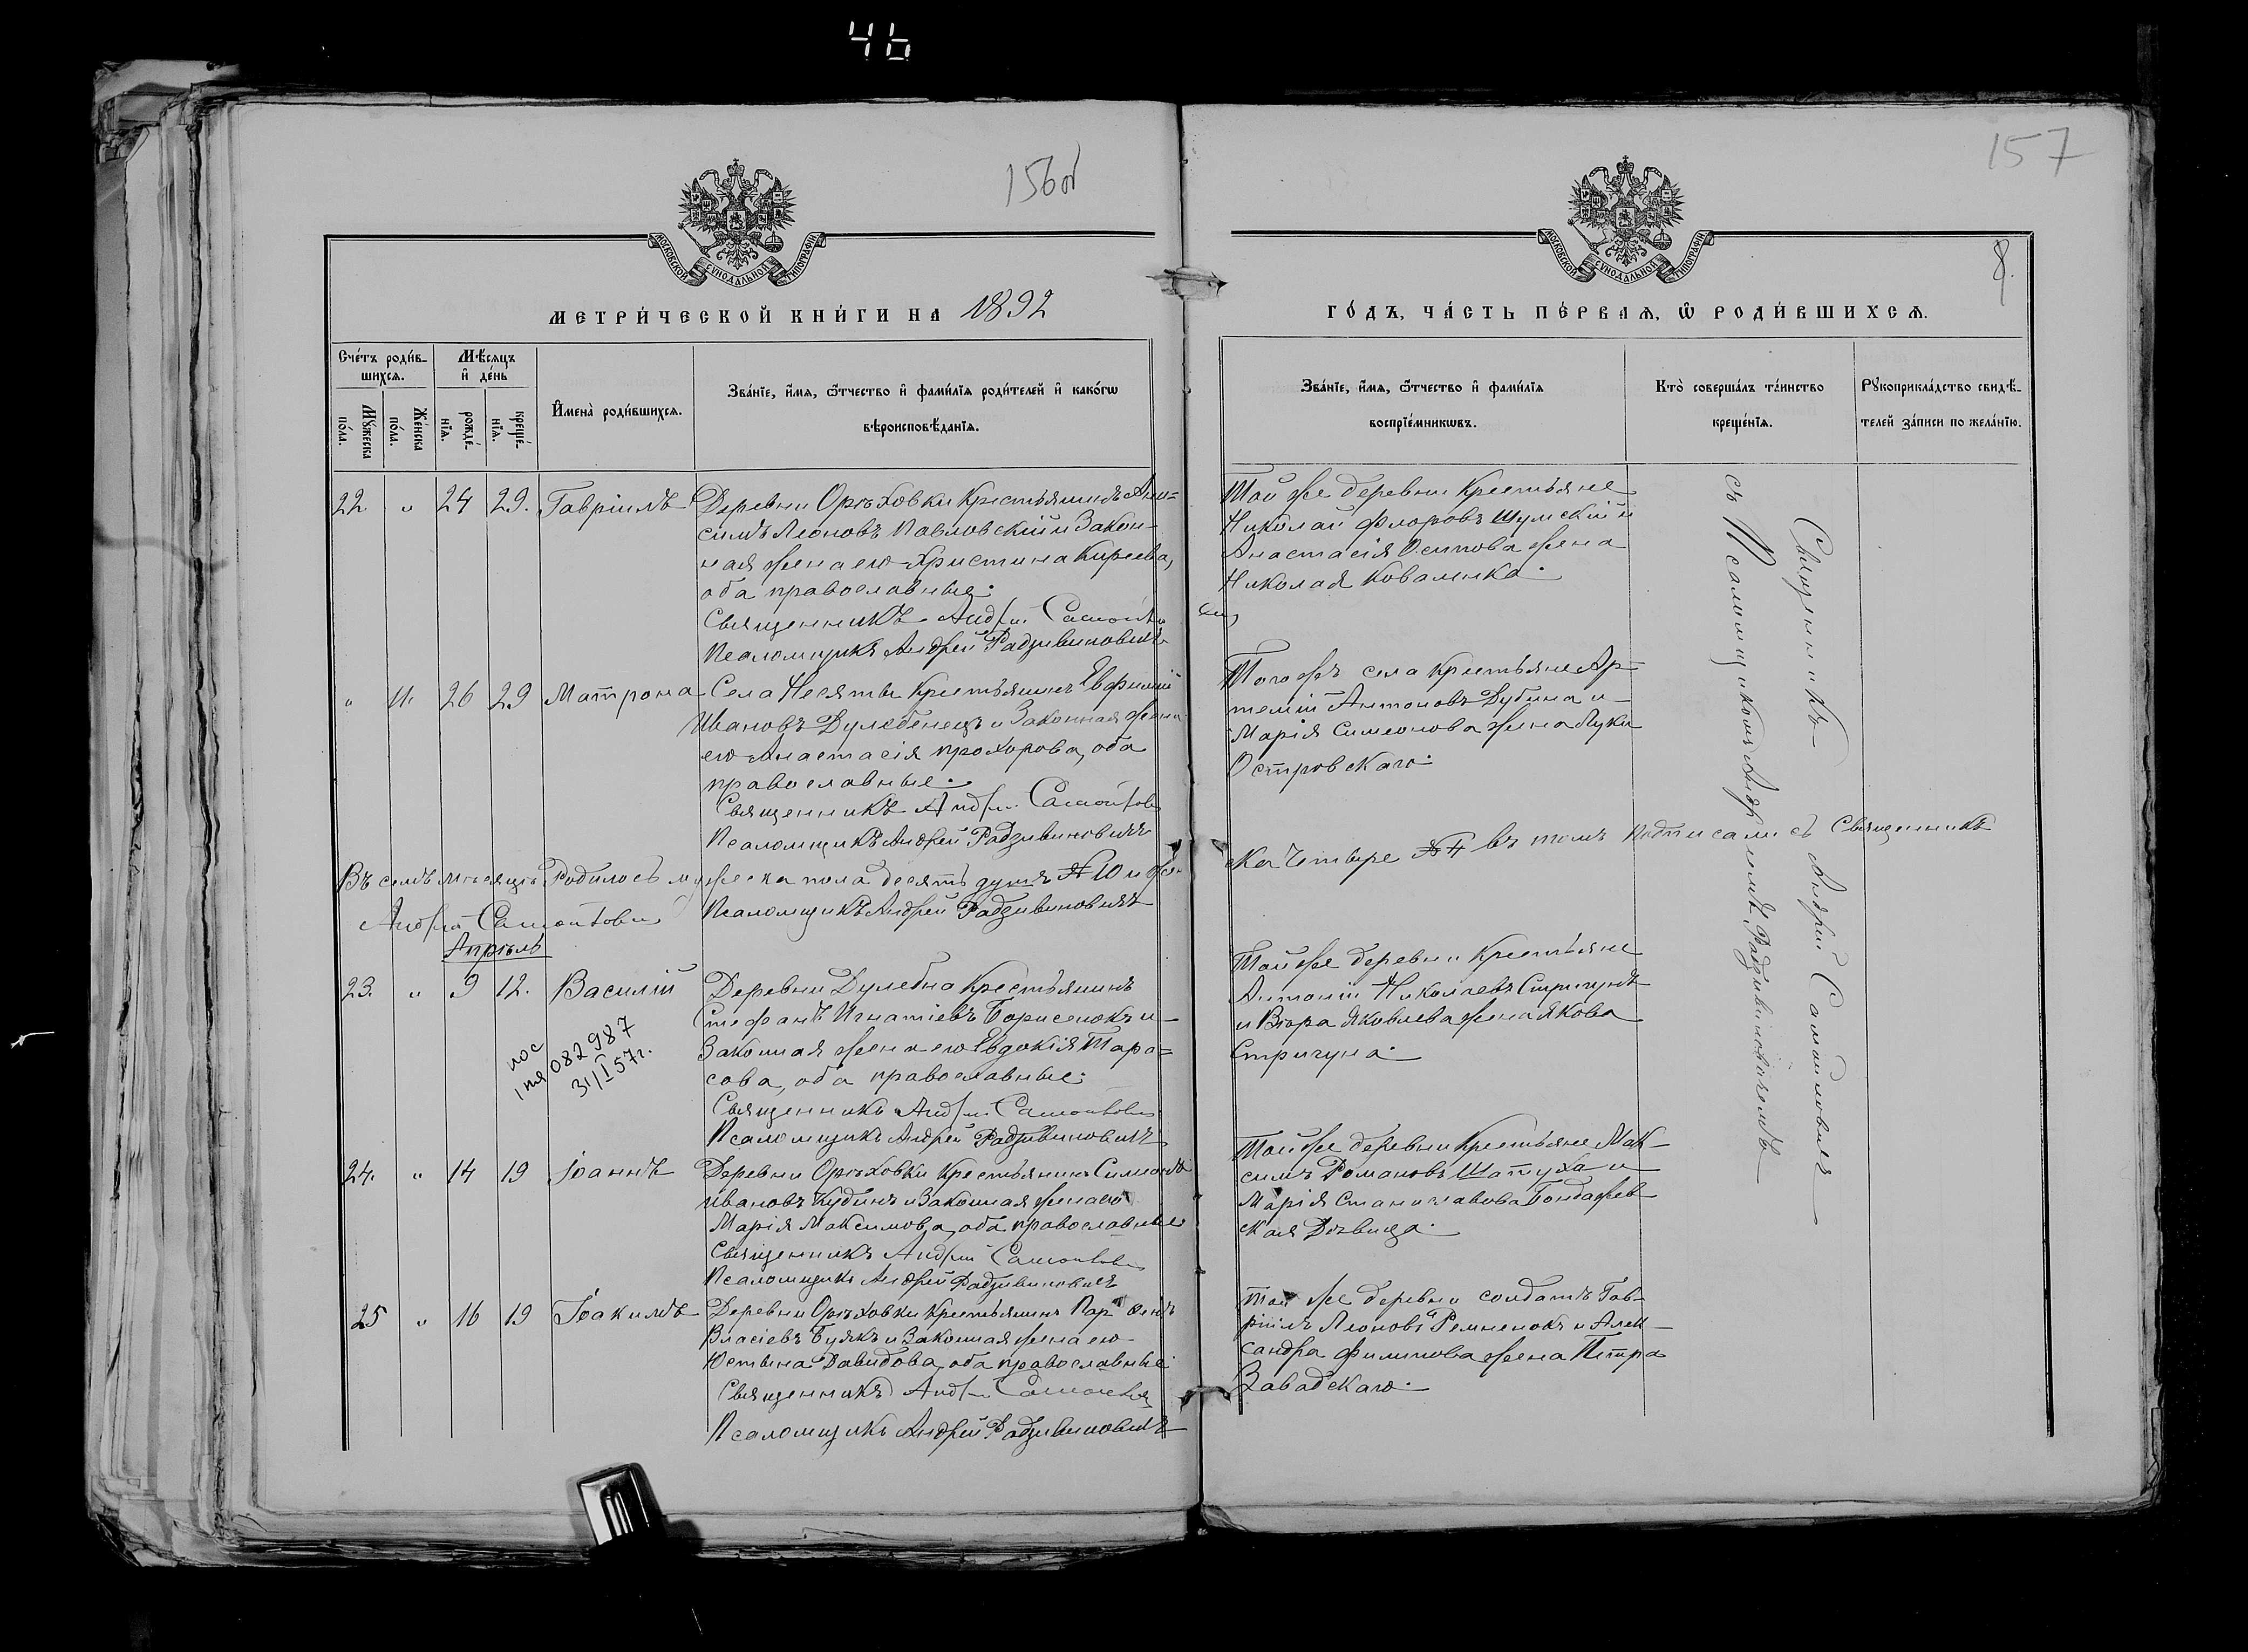 46
156об
157
МОСКОВСКОЙ СѴНОДАЛЬНОЙ ТИПОГРАФІИ
МОСКОВСКОЙ СѴНОДАЛЬНОЙ ТИПОГРАФІИ
8.
МЕТРИ́ЧЕСКОЙ КНИ́ГИ НА 1892
ГО́ДЪ, ЧА́СТЬ ПЕ́РВАѦ, Ѡ҆ РОДИ́ВШИХСѦ.
Сче́тъ роди́в-
шихсѧ.
Мѣ́сяцъ
и҆ де́нь
Мꙋ́жеска по́ла.
Же́нска по́ла.
рожде́-нїѧ.
креще́-нїѧ.
И҆мена̀ роди́вшихсѧ.
Зва́нїе, и҆́мѧ, ѻ҆́тчество и҆ фами́лїѧ роди́телей и҆ како́гѡ
вѣроисповѣ́данїѧ.
Зва́нїе, и҆́мѧ, ѻ҆́тчество и҆ фами́лїѧ
воспрїе́мникѡвъ.
Кто̀ соверша́лъ та́инство
креще́нїѧ.
Рꙋкоприкла́дство свидѣ́-
телей за́писи по жела́нїю.
22. " 24 29. Гавріилъ
Деревни Орѣховки Крестьянинъ Ани=
симъ Леоновъ Павловскій и Закон-
ная жена его Христина Киреева,
оба православные.
Священникъ Андрей Самойлович
Псаломщикъ Андрей Радзивиновичъ
Той же деревни Крестьяне
Николай Флоровъ Шумскій и
Анастасія Осипова жена
Николая Коваленка.
" 11. 26 29 Матрона
Села Несяты Крестьянинъ Евфимій
Ивановъ Дулебенецъ и Законная жена
его Анастасія Прохорова, оба
православные.
Священникъ Андрей Самойлов
Псаломщикъ Андрей Радзивиновичъ
Того жъ села Крестьяне Ар-
темій Антоновъ Дубина и
Марія Симеонова жена Луки
Островскаго.
Въ семъ мѣсяцѣ Родилось мужеска пола десять душъ № 10 и жен
ска четыре № 4 въ томъ подписались Священникъ
Андрей Самойлович Псаломщикъ Андрей Радзивиновичъ
Апрѣль
23. " 9 12. Василій
Деревни Дулебна Крестьянинъ
Стефанъ Игнатіевъ Борисенокъ и
Законная жена его Евдокія Тара=
сова, оба православные.
Священникъ Андрей Самойлович
Псаломщикъ Андрей Радзивиновичъ
082987
31/I 57г.
Той же деревни Крестьяне
Антоній Николаевъ Стригунъ
и Вѣра Яковлева жена Якова
Стригуна.
24. " 14 19 Іоаннъ
Деревни Орѣховки Крестьянинъ Симеонъ
Ивановъ Кудинъ и Законная жена его
Марія Максимова, оба православные
Священникъ Андрей Самойлович
Псаломщикъ Андрей Радзивиновичъ
Той же деревни Крестьяне Мак-
симъ Романовъ Шатуха и
Марія Станиславова Бондарев-
ская Дѣвица.
25 " 16 19 Іоакимъ
Деревни Орѣховки Крестьянинъ Парѳенъ
Власіевъ Буякъ и Законная жена его
Юстина Давидова, оба православные
Священникъ Андрей Самойлович
Псаломщикъ Андрей Радзивиновичъ
Той же деревни солдатъ Гав-
ріилъ Леоновъ Ремненокъ и Алек-
сандра Филипова жена Петра
Завадскаго.
Священникъ Андрей Самойловичъ
съ Псаломщикомъ Андреемъ Радзивиновичемъ